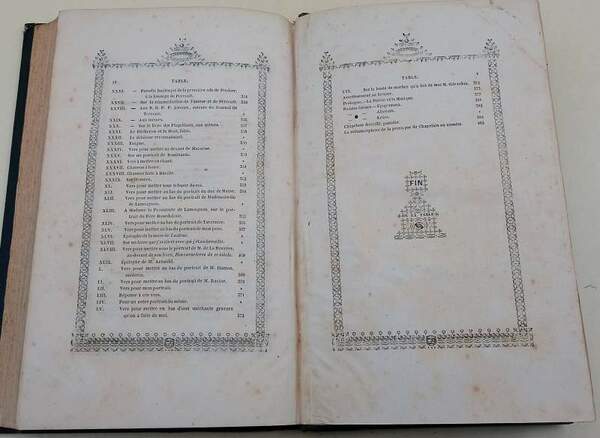 TABLE.
XXVI. — Parodie burlesque de la première ode de Pindare,
à la louange de Perrault.
XXVII. — Sur la réconciliation de l'auteur et de Perrault.
XXVIII. — Aux R. R. P. P. Jésuites, auteurs du Journal de
Trévoux.
XXIX. — Aux mêmes.
XXX. — Sur le livre des Flagellants, aux mêmes.
XXXI. Le Bûcheron et la Mort, fable.
XXXII. Le débiteur reconnaissant.
XXXIII. Énigme.
XXXIV. Vers pour mettre au devant de Macarise.
XXXV. Sur un portrait de
XXXVI. Vers à mettre en chant.
XXXVII. Chanson à boire.
XXXVIII. Chanson faite à Bâville.
XXXIX.
XL. Vers pour mettre sous le buste du roi.
XLI. Vers pour mettre au bas du portrait du duc de Maine.
XLII. Vers pour mettre au bas du portrait de Mademoiselle de
Lamoignon.
XLIII. A Madame la Présidente de Lamoignon, sur le por-
trait du Père Bourdaloue.
XLIV. Vers pour mettre au bas du portrait de Tavernier.
XLV. Vers pour mettre au bas du portrait de mon père.
XLVI. Épitaphe de la mère de l'auteur.
XLVII. Sur un frère aîné que j'avais et avec qui j'étais brouillé.
XLVIII. Vers pour mettre sous le portrait de M. de La Bruyère,
au-devant de son livre, Des caractères de ce siècle.
XLIX. Épitaphe de M. Arnauld.
L. Vers pour mettre au bas du portrait de M. Hamon,
médecin.
LI. Vers pour mettre au bas du portrait de M. Racine.
LII. Vers pour mon portrait.
LIII. Réponse à ces vers. 371
LIV. Pour un autre portrait du même.
LV. Vers pour mettre en bas d'une méchante gravure
qu'on a faite de moi. 372
TABLE.
LVI. Sur le buste de marbre qu'a fait de moi M. Girardon. 372
Avertissement au lecteur. 373
Prologue. — La Poésie et la Musique.
Poésies latines. — Epigramma.
— Alterum.
— Satira.
Chapelain décoiffé, parodie.
La métamorphose de la perruque de Chapelain en comète.
FIN
LA TABLE